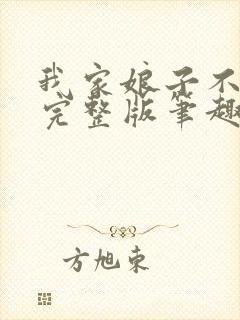 我家娘子不
完整版笔趣
方旭东